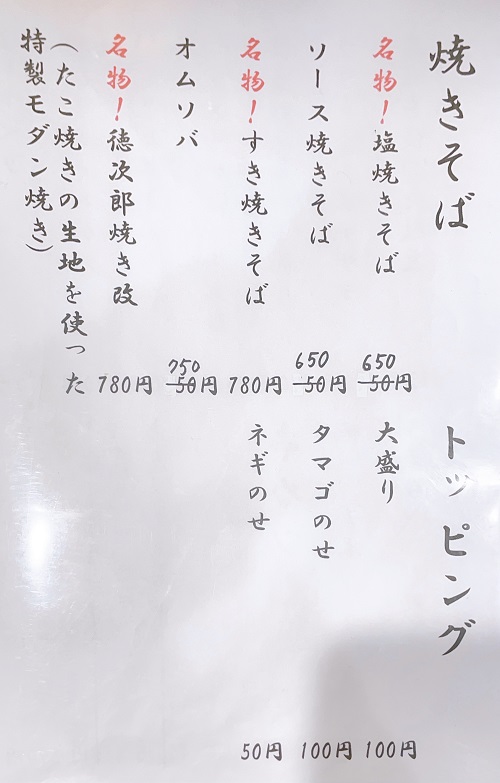 焼きそば
名物!塩焼きそば
650
50円
ソース焼きそば
650
50円
名物!すき焼きそば
780円
オムソバ
750
50円
名物!徳次郎焼き改
780円
(たこ焼きの生地を使った
特製モダン焼き)
トッピング
大盛り
100円
タマゴのせ
100円
ネギのせ
50円